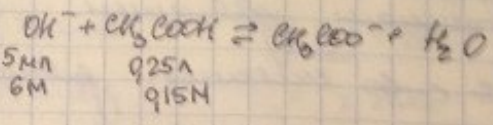 OH⁻ + CH₃COOH ⇌ CH₃COO⁻ + H₂O
5мл 0,25л
6М 0,15М